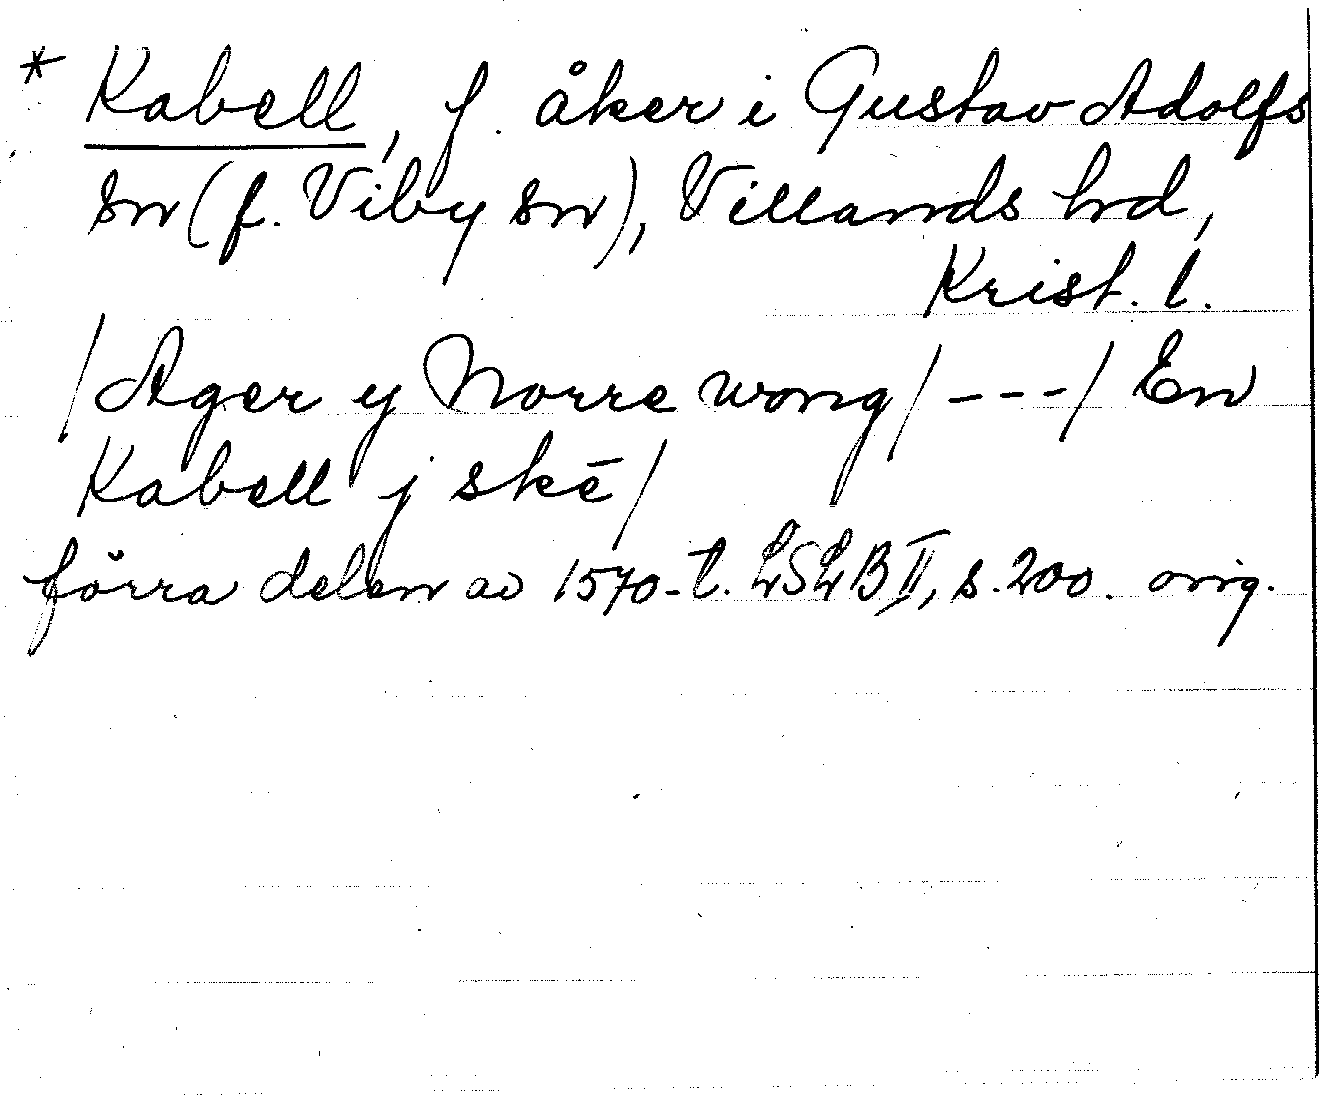 * Kabell, f. åker i Gustav Adolfs
sn (f. Viby sn), Villands hd,
Krist. l.
/Ager y Norre wong/ - - - / En
Kabell j skē/
förra delen av 1570-t. LSLB II, s. 200. orig.